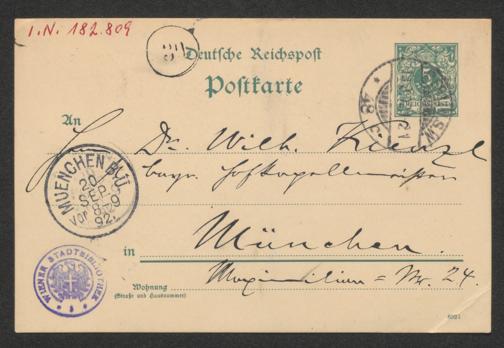 I.N. 182.809
Deutsche Reichspost
Postkarte
5
An
Dr. Wilh. Kienzl
bayr. Hofkapellmeister
MUENCHEN B.II.
20
SEP
VOR
92
in München.
WIENER STADTBIBLIOTHEK
Wohnung Maximilian-Str. 24.
(Straße und Hausnummer)